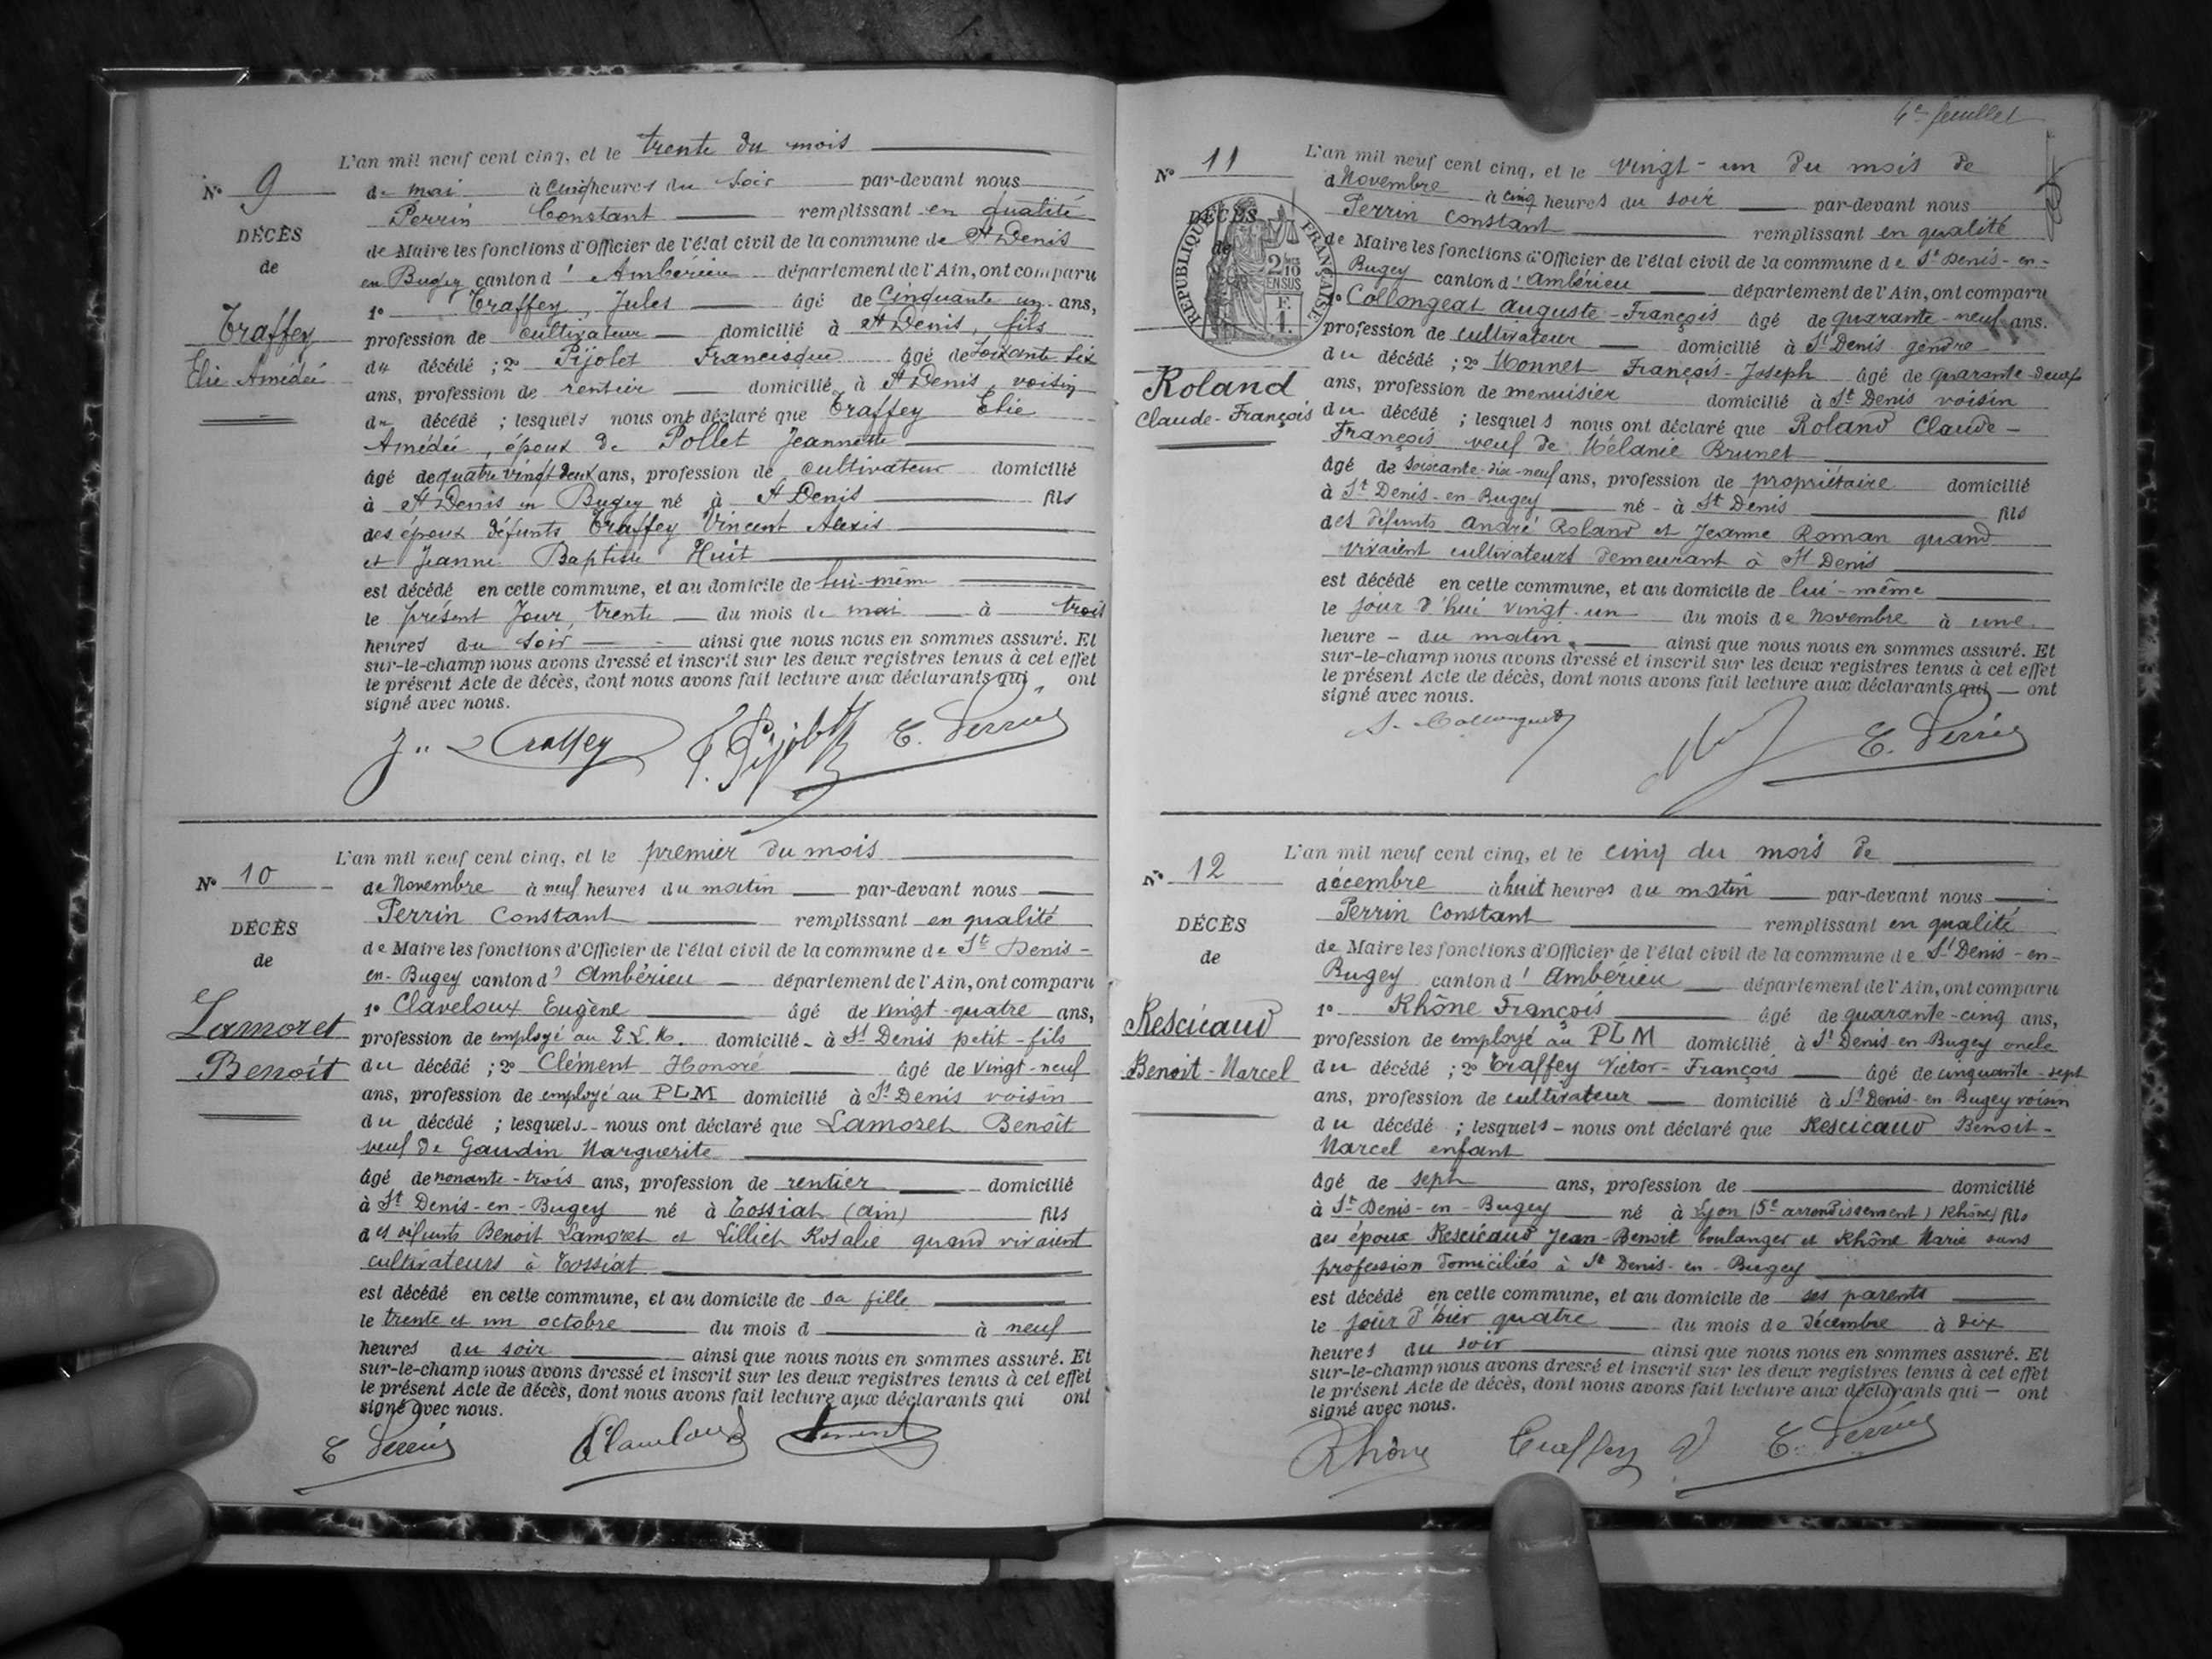 L'an mil neuf cent cinq, et le trente du mois
N° 9
de mai à cinq heures du soir par-devant nous
Perrin Constant remplissant en qualité
DÉCÈS
de Maire les fonctions d'Officier de l'état civil de la commune de St Denis
de
en Bugey canton d' Ambérieu département de l'Ain, ont comparu
1° Traffey, Jules âgé de Cinquante un ans,
Traffey
profession de cultivateur domicilié à St Denis, fils
Elie Amédée
du décédé ; 2° Pijolet Francisque âgé de Soixante six
ans, profession de rentier domicilié à St Denis, voisin
du décédé ; lesquels nous ont déclaré que Traffey Elie
Amédée, époux de Pollet Jeannette
âgé de quatre vingt deux ans, profession de cultivateur domicilié
à St Denis en Bugey né à St Denis fils
des époux défunts Traffey Vincent Alexis
et Jeanne Baptiste Huit
est décédé en cette commune, et au domicile de lui-même
le présent Jour, trente du mois de mai à trois
heures du Soir ainsi que nous nous en sommes assuré. Et
sur-le-champ nous avons dressé et inscrit sur les deux registres tenus à cet effet
le présent Acte de décès, dont nous avons fait lecture aux déclarants qui ont
signé avec nous.
J. Traffey F. Pijolet C. Perrin
L'an mil neuf cent cinq, et le premier du mois
N° 10
de Novembre à neuf heures du matin par-devant nous
Perrin Constant remplissant en qualité
DÉCÈS
de Maire les fonctions d'Officier de l'état civil de la commune de St Denis-
de
en-Bugey canton d' Ambérieu département de l'Ain, ont comparu
1° Claveloux Eugène âgé de vingt-quatre ans,
Lamoret
profession de employé au P.L.M. domicilié à St Denis petit-fils
Benoît
du décédé ; 2° Clément Honoré âgé de vingt-neuf
ans, profession de employé au PLM domicilié à St Denis voisin
du décédé ; lesquels nous ont déclaré que Lamoret Benoît
veuf de Gaudin Marguerite
âgé de nonante-trois ans, profession de rentier domicilié
à St Denis-en-Bugey né à Tossiat (Ain) fils
des défunts Benoit Lamoret et Lilliet Rosalie quand vivaient
cultivateurs à Tossiat
est décédé en cette commune, et au domicile de sa fille
le trente et un octobre du mois d à neuf
heures du soir ainsi que nous nous en sommes assuré. Et
sur-le-champ nous avons dressé et inscrit sur les deux registres tenus à cet effet
le présent Acte de décès, dont nous avons fait lecture aux déclarants qui ont
signé avec nous.
C. Perrin Claveloux Clément
4e feuillet
L'an mil neuf cent cinq, et le vingt-un du mois de
N° 11
d Novembre à cinq heures du soir par-devant nous
Perrin Constant remplissant en qualité
DÉCÈS
de
RÉPUBLIQUE FRANÇAISE
2/10 EN SUS
F. 1.
de Maire les fonctions d'Officier de l'état civil de la commune de St Denis-en-
Bugey canton d' Ambérieu département de l'Ain, ont comparu
1° Collongeat Auguste-François âgé de quarante-neuf ans.
profession de cultivateur domicilié à St Denis gendre
Roland
du décédé ; 2° Monnet François-Joseph âgé de quarante-deux
ans, profession de menuisier domicilié à St Denis voisin
Claude-François
du décédé ; lesquels nous ont déclaré que Roland Claude-
François veuf de Mélanie Brunet
âgé de soixante-dix-neuf ans, profession de propriétaire domicilié
à St Denis-en-Bugey né à St Denis fils
des défunts André Roland et Jeanne Roman quand
vivaient cultivateurs demeurant à St Denis
est décédé en cette commune, et au domicile de lui-même
le jour d'hui vingt-un du mois de Novembre à une
heure du matin ainsi que nous nous en sommes assuré. Et
sur-le-champ nous avons dressé et inscrit sur les deux registres tenus à cet effet
le présent Acte de décès, dont nous avons fait lecture aux déclarants qui ont
signé avec nous.
Collongeat C. Perrin
L'an mil neuf cent cinq, et le cinq du mois de
N° 12
décembre à huit heures du matin par-devant nous
Perrin Constant remplissant en qualité
DÉCÈS
de Maire les fonctions d'Officier de l'état civil de la commune de St Denis-en-
de
Bugey canton d' Ambérieu département de l'Ain, ont comparu
1° Rhône François âgé de quarante-cinq ans,
Rescicaud
profession de employé au PLM domicilié à St Denis-en-Bugey oncle
Benoit-Marcel
du décédé ; 2° Traffey Victor-François âgé de cinquante-sept
ans, profession de cultivateur domicilié à St Denis-en-Bugey voisin
du décédé ; lesquels nous ont déclaré que Rescicaud Benoit-
Marcel enfant
âgé de sept ans, profession de domicilié
à St Denis-en-Bugey né à Lyon (5e arrondissement) Rhône) fils
des époux Rescicaud Jean-Benoit boulanger et Rhône Marie sans
profession domiciliés à St Denis-en-Bugey
est décédé en cette commune, et au domicile de ses parents
le jour d'hier quatre du mois de Décembre à dix
heures du soir ainsi que nous nous en sommes assuré. Et
sur-le-champ nous avons dressé et inscrit sur les deux registres tenus à cet effet
le présent Acte de décès, dont nous avons fait lecture aux déclarants qui ont
signé avec nous.
Rhône Traffey V C. Perrin